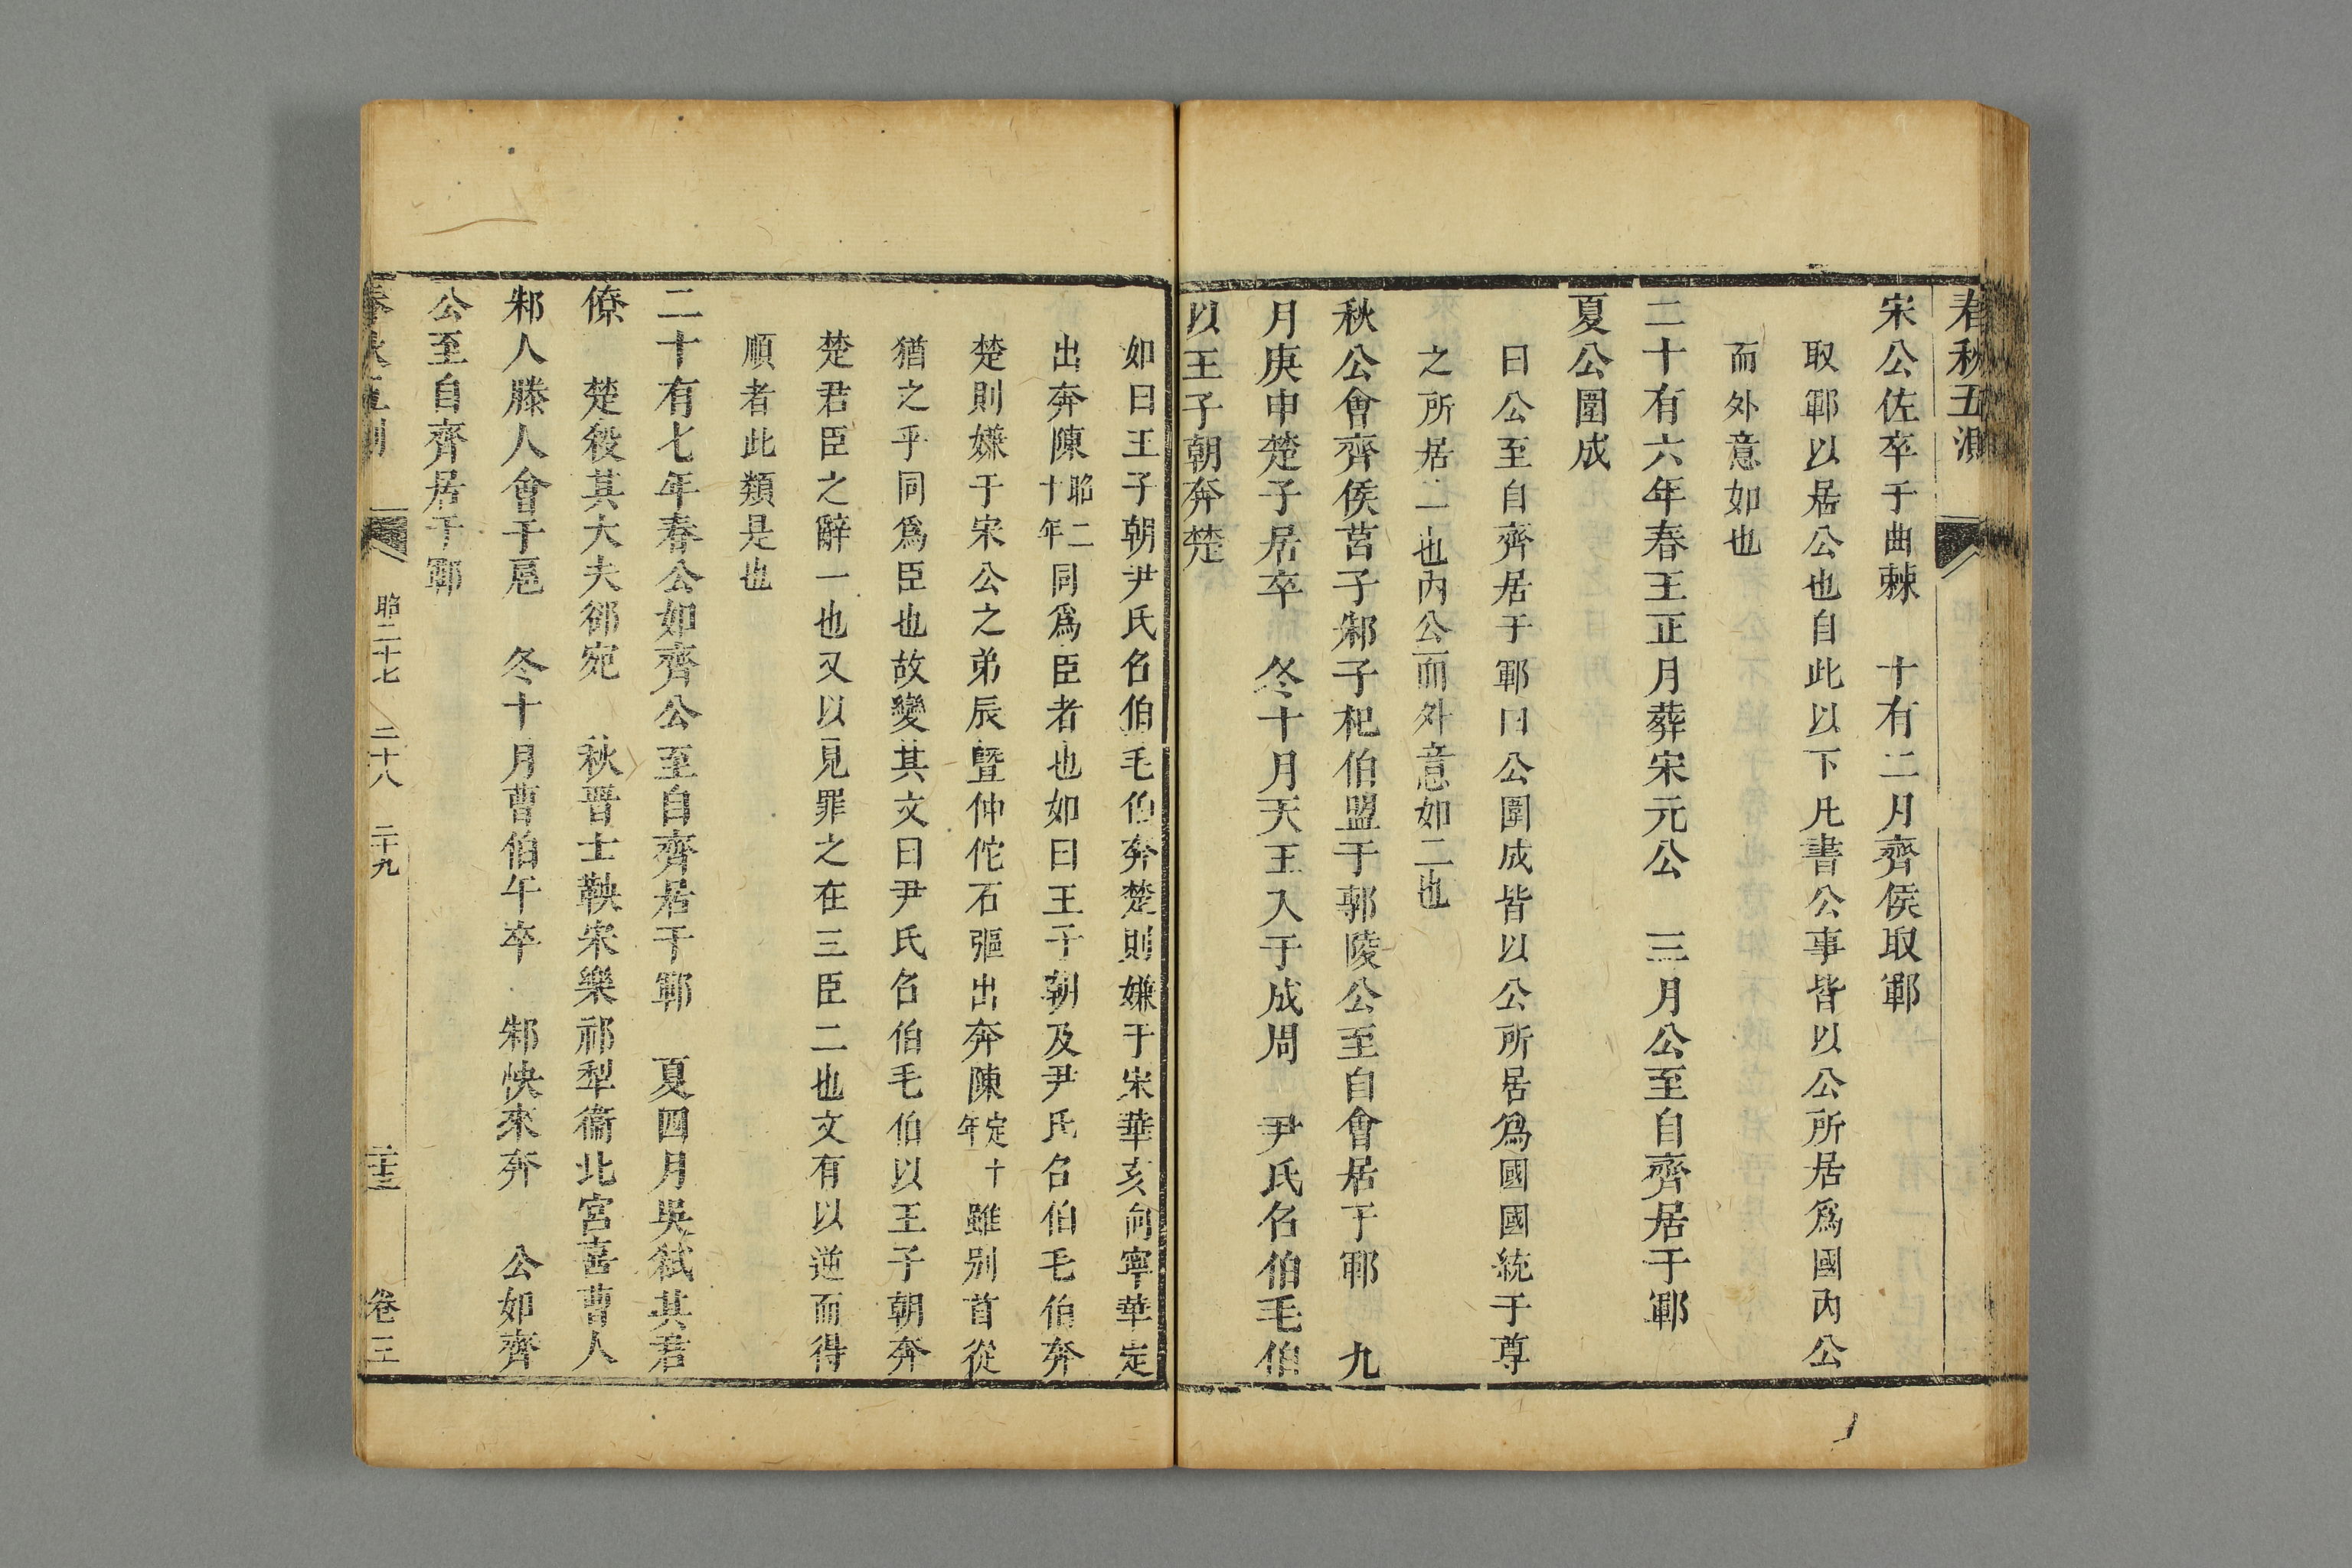 春秋五測
宋公佐卒于曲棘　十有二月齊侯取鄆
取鄆以居公也自此以下凡書公事皆以公所居爲國內公
而外意如也
二十有六年春王正月葬宋元公　三月公至自齊居于鄆
夏公圍成
曰公至自齊居于鄆曰公圍成皆以公所居爲國國統于尊
之所居一也內公而外意如二也
秋公會齊侯莒子邾子杞伯盟于鄟陵公至自會居于鄆　九
月庚申楚子居卒　冬十月天王入于成周　尹氏召伯毛伯
以王子朝奔楚
如曰王子朝尹氏召伯毛伯奔楚則嫌于宋華亥向寧華定
出奔陳昭二十年同爲臣者也如曰王子朝及尹氏召伯毛伯奔
楚則嫌于宋公之弟辰暨仲佗石彄出奔陳定十年雖別首從
猶之乎同爲臣也故變其文曰尹氏召伯毛伯以王子朝奔
楚君臣之辭一也又以見罪之在三臣二也文有以逆而得
順者此類是也
二十有七年春公如齊公至自齊居于鄆　夏四月吳弒其君
僚　楚殺其大夫郤宛　秋晉士鞅宋樂祁犁衞北宮喜曹人
邾人滕人會于扈　冬十月曹伯午卒　邾快來奔　公如齊
公至自齊居于鄆
春秋五測　昭二十七　二十八　二十九　二十三　卷三